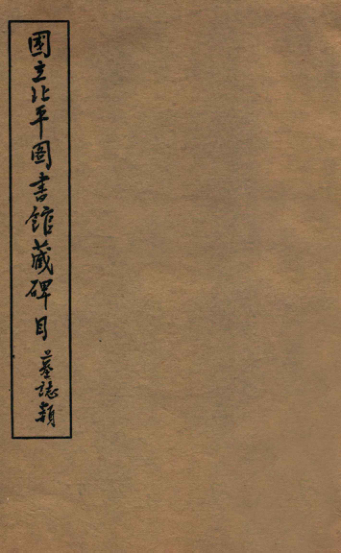 国立北平图書館藏碑目 墓誌類